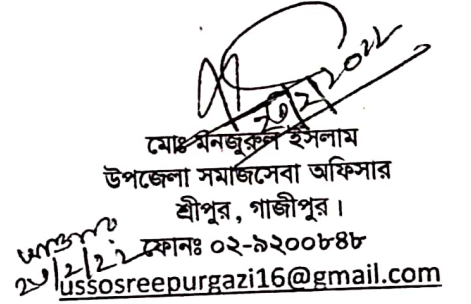 ২৩/২/২০২২
মোঃ মনজুরুল ইসলাম
উপজেলা সমাজসেবা অফিসার
শ্রীপুর, গাজীপুর।
ফোনঃ ০২-৯২০০৮৪৮
ussosreepurgazi16@gmail.com